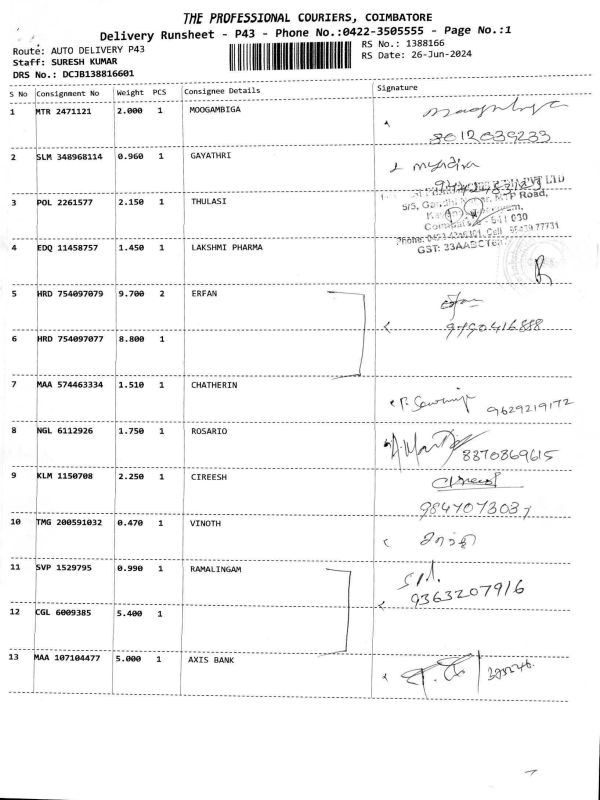 THE PROFESSIONAL COURIERS, COIMBATORE
Delivery Runsheet - P43 - Phone No.:0422-3505555 - Page No.:1
Route: AUTO DELIVERY P43
Staff: SURESH KUMAR
DRS No.: DCJB138816601
RS No.: 1388166
RS Date: 26-Jun-2024
S No Consignment No Weight PCS Consignee Details Signature
1 MTR 2471121 2.000 1 MOOGAMBIGA
8012039233
2 SLM 348968114 0.960 1 GAYATHRI
3 POL 2261577 2.150 1 THULASI
PVT LTD
5/5, Gandhi Nagar, MTP Road,
Coimbatore - 641 030
GST: 33AABCT6
4 EDQ 11458757 1.450 1 LAKSHMI PHARMA
5 HRD 754097079 9.700 2 ERFAN
9790416888
6 HRD 754097077 8.800 1
7 MAA 574463334 1.510 1 CHATHERIN
9629219172
8 NGL 6112926 1.750 1 ROSARIO
8870869615
9 KLM 1150708 2.250 1 CIREESH
9847073037
10 TMG 200591032 0.470 1 VINOTH
11 SVP 1529795 0.990 1 RAMALINGAM
9363207916
12 CGL 6009385 5.400 1
13 MAA 107104477 5.000 1 AXIS BANK